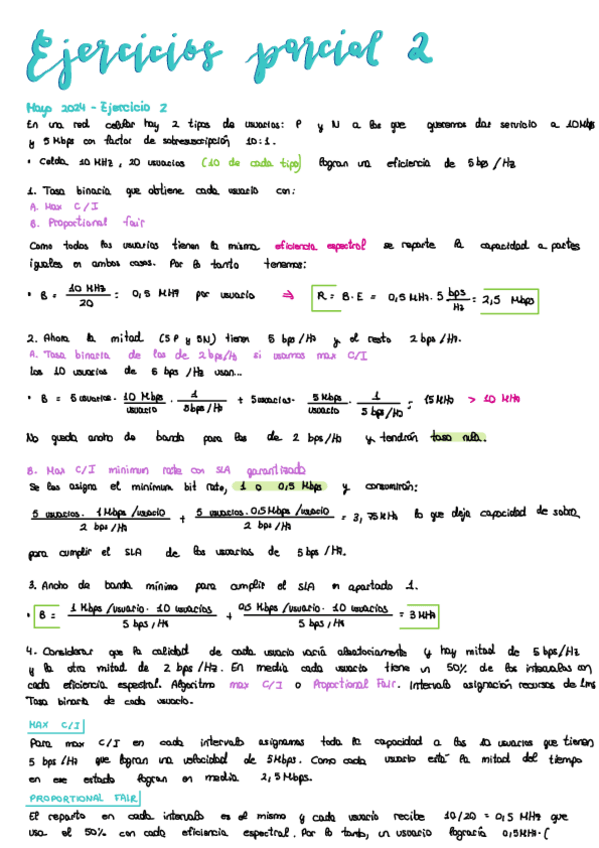 Ejercicios parcial 2
Mayo 2024 - Ejercicio 2
En una red celular hay 2 tipos de usuarios: P y N a los que queremos dar servicio a 10Mbps
y 5 Mbps con factor de sobresuscripción 10:1.
• Celda 10 MHz, 20 usuarios (10 de cada tipo) logran una eficiencia de 5 bps / Hz
1. Tasa binaria que obtiene cada usuario con:
A. Max C/I
B. Proportional fair
Como todos los usuarios tienen la misma eficiencia espectral se reparte la capacidad a partes
iguales en ambos casos. Por lo tanto tenemos:
• B = 10 MHz / 20 = 0,5 MHz por usuario ⇒ R = B·E = 0,5 MHz · 5 bps / Hz = 2,5 Mbps
2. Ahora la mitad (5 P y 5N) tienen 5 bps /Hz y el resto 2 bps /Hz.
A. Tasa binaria de los de 2 bps/Hz si usamos max C/I
Los 10 usuarios de 5 bps / Hz usan...
• B = 5 usuarios · 10 Mbps / usuario · 1 / 5bps / Hz + 5 usuarios · 5 Mbps / usuario · 1 / 5 bps / Hz = 15 MHz > 10 MHz
No queda ancho de banda para los de 2 bps/Hz y tendrán tasa nula.
B. Max C/I minimum rate con SLA garantizado
Se les asigna el minimum bit rate, 1 o 0,5 Mbps y consumirán:
5 usuarios · 1 Mbps / usuario / 2 bps / Hz + 5 usuarios · 0,5 Mbps / usuario / 2 bps / Hz = 3,75 MHz lo que deja capacidad de sobra
para cumplir el SLA de los usuarios de 5 bps / Hz.
3. Ancho de banda mínimo para cumplir el SLA en apartado 1.
• B = 1 Mbps /usuario · 10 usuarios / 5 bps / Hz + 0,5 Mbps /usuario · 10 usuarios / 5 bps / Hz = 3 MHz
4. Considerar que la calidad de cada usuario varía aleatoriamente y hay mitad de 5 bps/Hz
y la otra mitad de 2 bps / Hz. En media cada usuario tiene un 50% de los intervalos con
cada eficiencia espectral. Algoritmo max C/I o Proportional Fair. Intervalo asignación recursos de 1ms
Tasa binaria de cada usuario.
MAX C/I
Para max C/I en cada intervalo asignamos toda la capacidad a los 10 usuarios que tienen
5 bps /Hz que logran una velocidad de 5Mbps. Como cada usuario está la mitad del tiempo
en ese estado logran en media 2,5 Mbps.
PROPORTIONAL FAIR
El reparto en cada intervalo es el mismo y cada usuario recibe 10/20 = 0,5 MHz que
usa el 50% con cada eficiencia espectral. Por lo tanto, un usuario lograría 0,5MHz · (